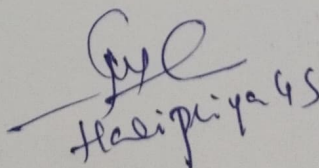 Haripriya G S